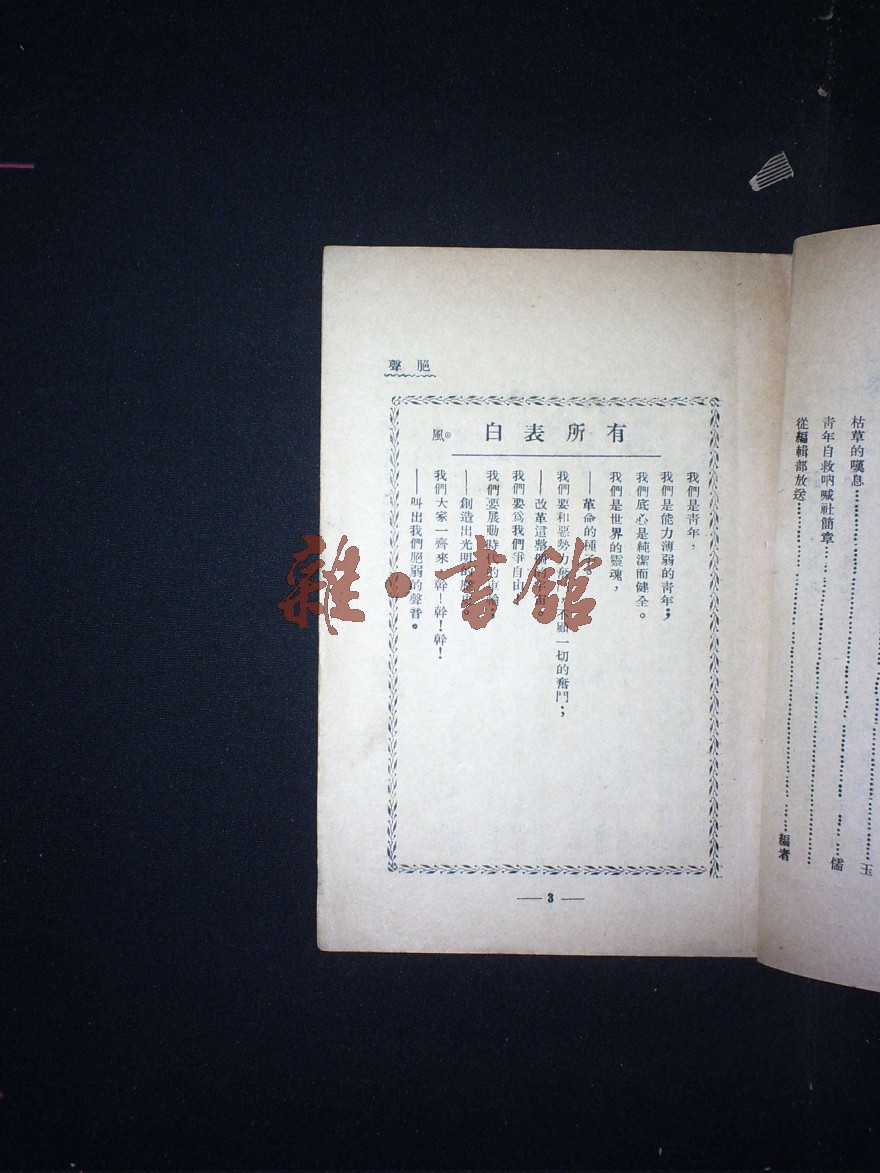 枯草的嘆息……玉
青年自救吶喊社簡章……儒
從編輯部放送……編者
聲 脃
有所表白
風
我們是青年，
我們是能力薄弱的青年；
我們底心是純潔而健全。
我們是世界的靈魂，
——革命的種
我們要和惡勢力 不顧一切的奮鬥；
——改革這整個的宇宙。
我們要爲我們爭自由，
我們要展動時代的車輪，
——創造出光明的
我們大家一齊來 幹！幹！幹！
——叫出我們脃弱的聲音。
— 3 —
雜·書館